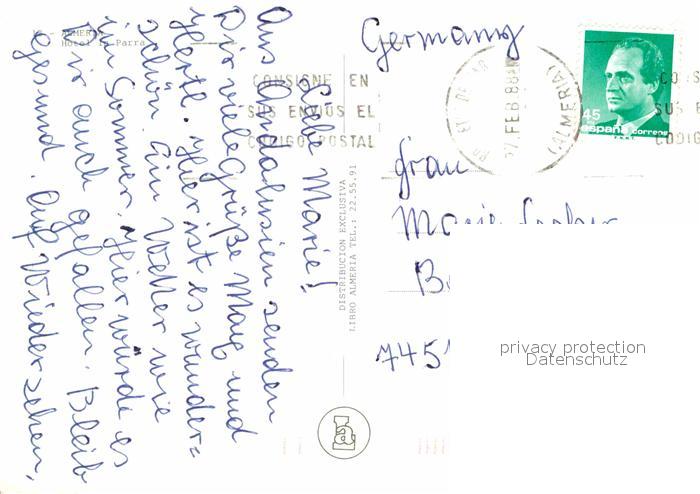 - ALMERIA
Hotel La Parra
Liebe Marie!
Aus Andalusien senden
Dir viele Grüße Marg und
Herte. Hier ist es wunder=
schön. Ein Wetter wie
im Sommer. Hier würde es
Dir auch gefallen. Bleib
gesund. Auf Wiedersehen.
DISTRIBUCION EXCLUSIVA
LIBRO ALMERIA TEL.: 22.55.91
Germany
CONSIGNE EN
SUS ENVIOS EL
CODIGO POSTAL
27 FEB 88
(ALMERIA)
45
españa correos
CONS
SUS E
CODIG
Frau
Marie
B
745
privacy protection
Datenschutz
La